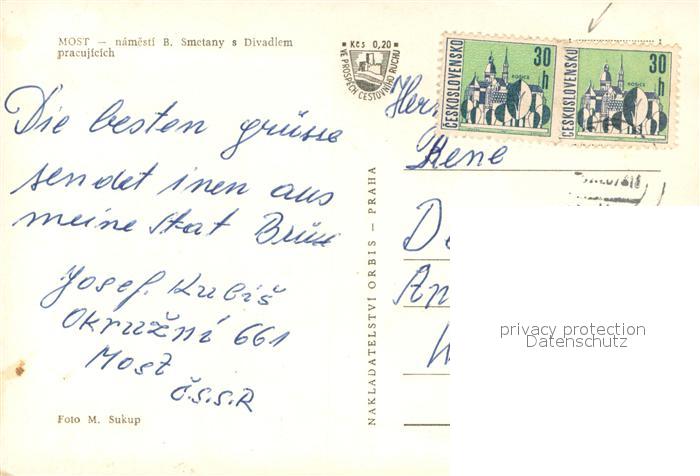 MOST — náměstí B. Smetany s Divadlem
pracujících
Die besten grüsse
sendet inen aus
meine stat Brüx
Josef Kubiš
Okružní 661
Most
Č.S.S.R
Foto M. Sukup
NAKLADATELSTVÍ ORBIS — PRAHA
Kčs 0,20
VE PROSPĚCH CESTOVNÍHO RUCHU
ČESKOSLOVENSKO
30 h
ROSICE
ČESKOSLOVENSKO
30 h
ROSICE
Herr
Rene
De
An
privacy protection
Datenschutz